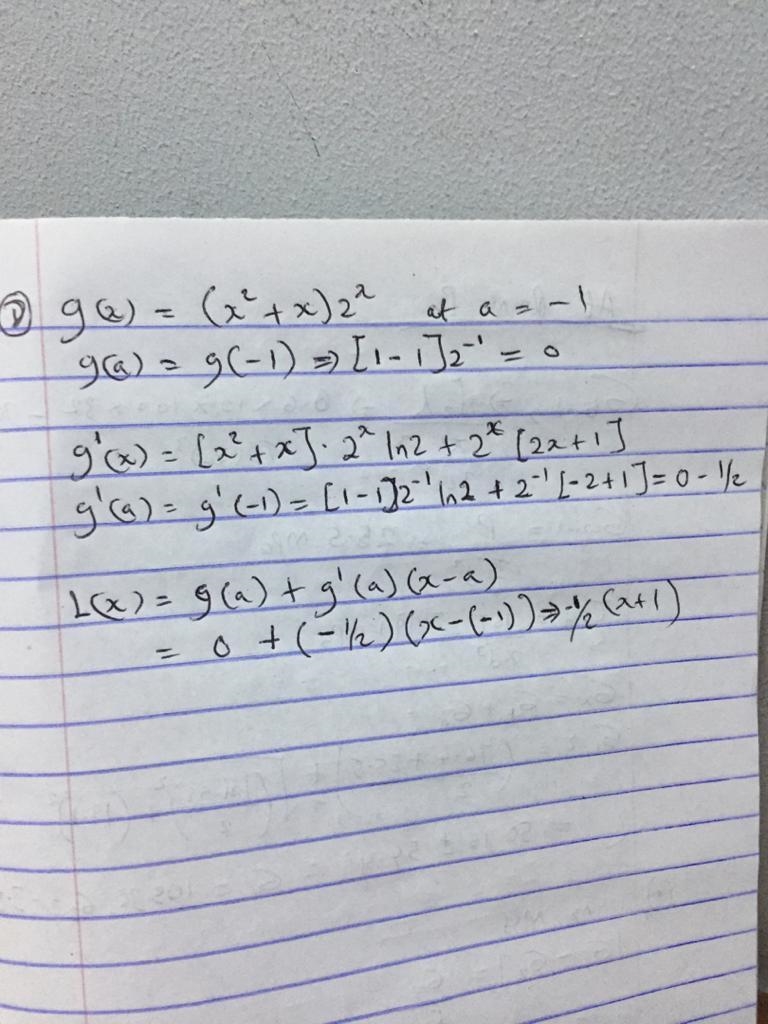 ① g(x) = (x² + x)2ˣ at a = -1
g(a) = g(-1) ⇒ [1-1]2⁻¹ = 0
g'(x) = [x² + x]· 2ˣ ln2 + 2ˣ [2x+1]
g'(a) = g'(-1) = [1-1]2⁻¹ ln2 + 2⁻¹ [-2+1] = 0 - 1/2
L(x) = g(a) + g'(a) (x-a)
= 0 + (-1/2) (x-(-1)) ⇒ -1/2 (x+1)